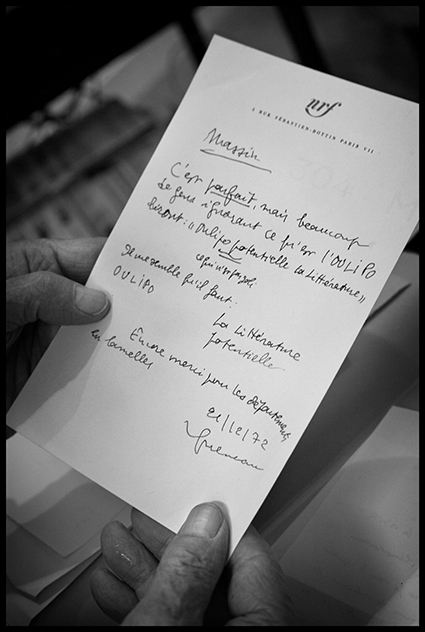 nrf
5 RUE SÉBASTIEN-BOTTIN PARIS VII
Massin
C'est parfait, mais beaucoup
de gens ignorant ce qu'est l'OULIPO
liront : "Oulipo potentielle la Littérature"
ce qui n'est pas joli
Il me semble qu'il faut :
OULIPO
La Littérature
potentielle
Encore merci pour les départements
en lamelles
21/12/72
Queneau